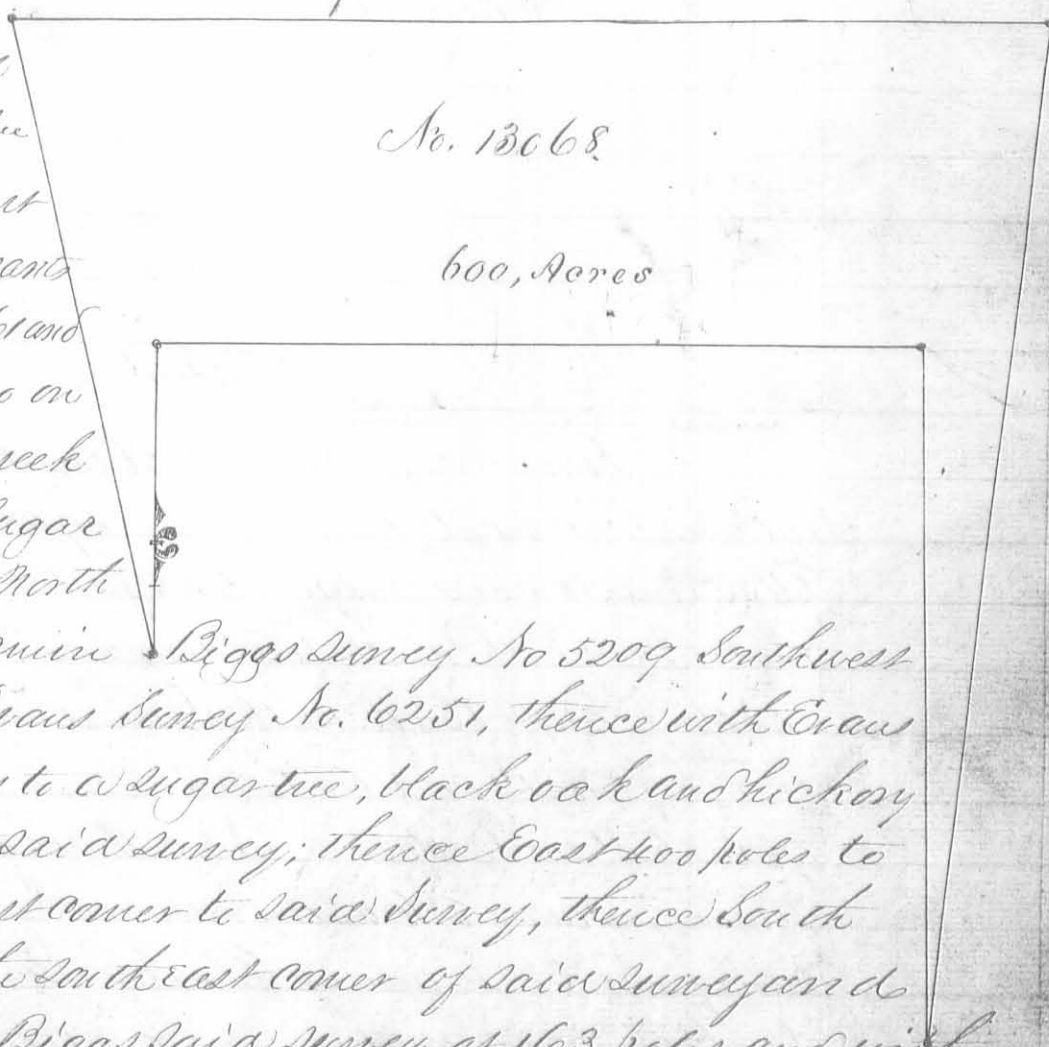 No. 13068.
600, Acres
and
on
North
Biggs Survey No 5209 Southwest
Evans Survey No. 6251, thence with Evans
to a sugar tree, black oak and hickory
said survey; thence East 400 poles to
corner to said Survey, thence South
southeast corner of said survey and
Biggs said survey at 163 poles and with